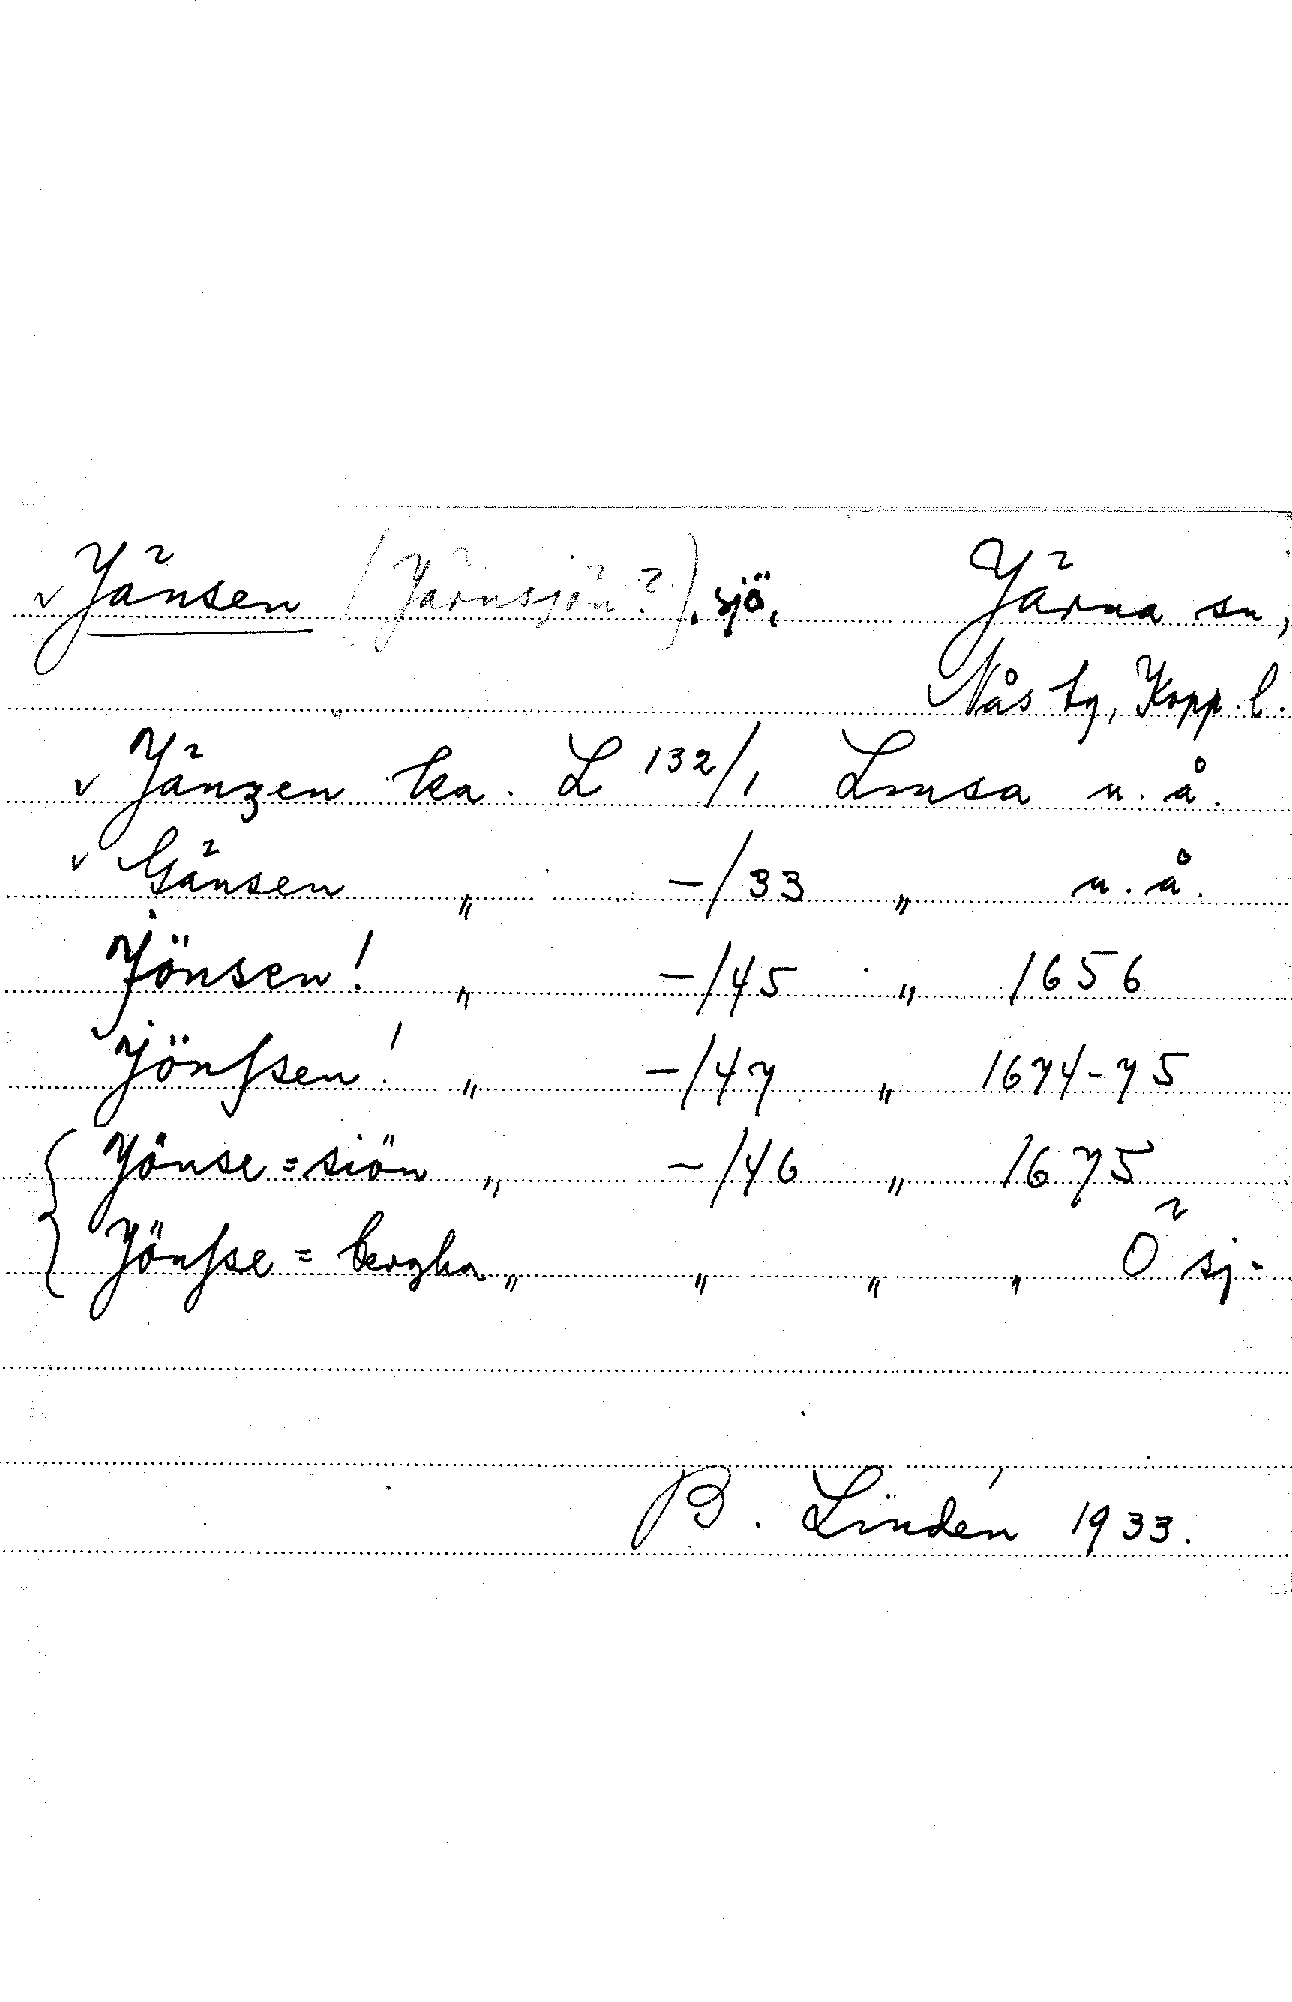 v Jänsen (Järnsjön?). sjö, Järna sn,
Nås tg, Kopp. l.
v Jänzen ka. L 132/1 Lmsa u. å.
v Gänsen " -/33 " u. å.
Jönsen! " -/45 " 1656
Jönſsen! " -/47 " 1674-75
{ Jönse = siön " -/46 " 1675
{ Jönſse = bergha " " " " Ö sj.
B. Lindén 1933.